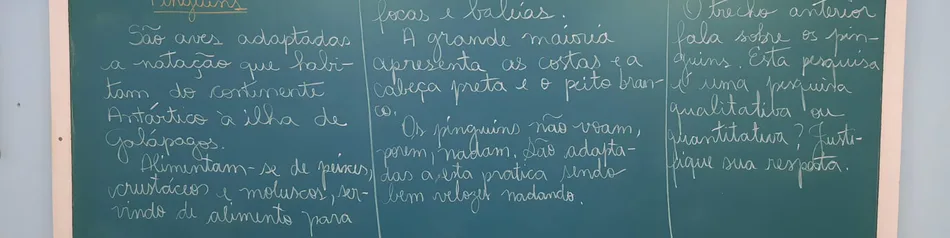 Pinguins
São aves adaptadas
a natação que habi-
tam do continente
Antártico à ilha de
Galápagos.
Alimentam-se de peixes,
crustáceos e moluscos, ser-
vindo de alimento para
focas e baleias.
A grande maioria
apresenta as costas e a
cabeça preta e o peito bran-
co.
Os pinguins não voam,
porem, nadam. São adapta-
das a esta pratica sendo
bem velozes nadando.
O trecho anterior
fala sobre os pin-
guins. Esta pesquisa
é uma pesquisa
qualitativa ou
quantitativa? Justi-
fique sua resposta.